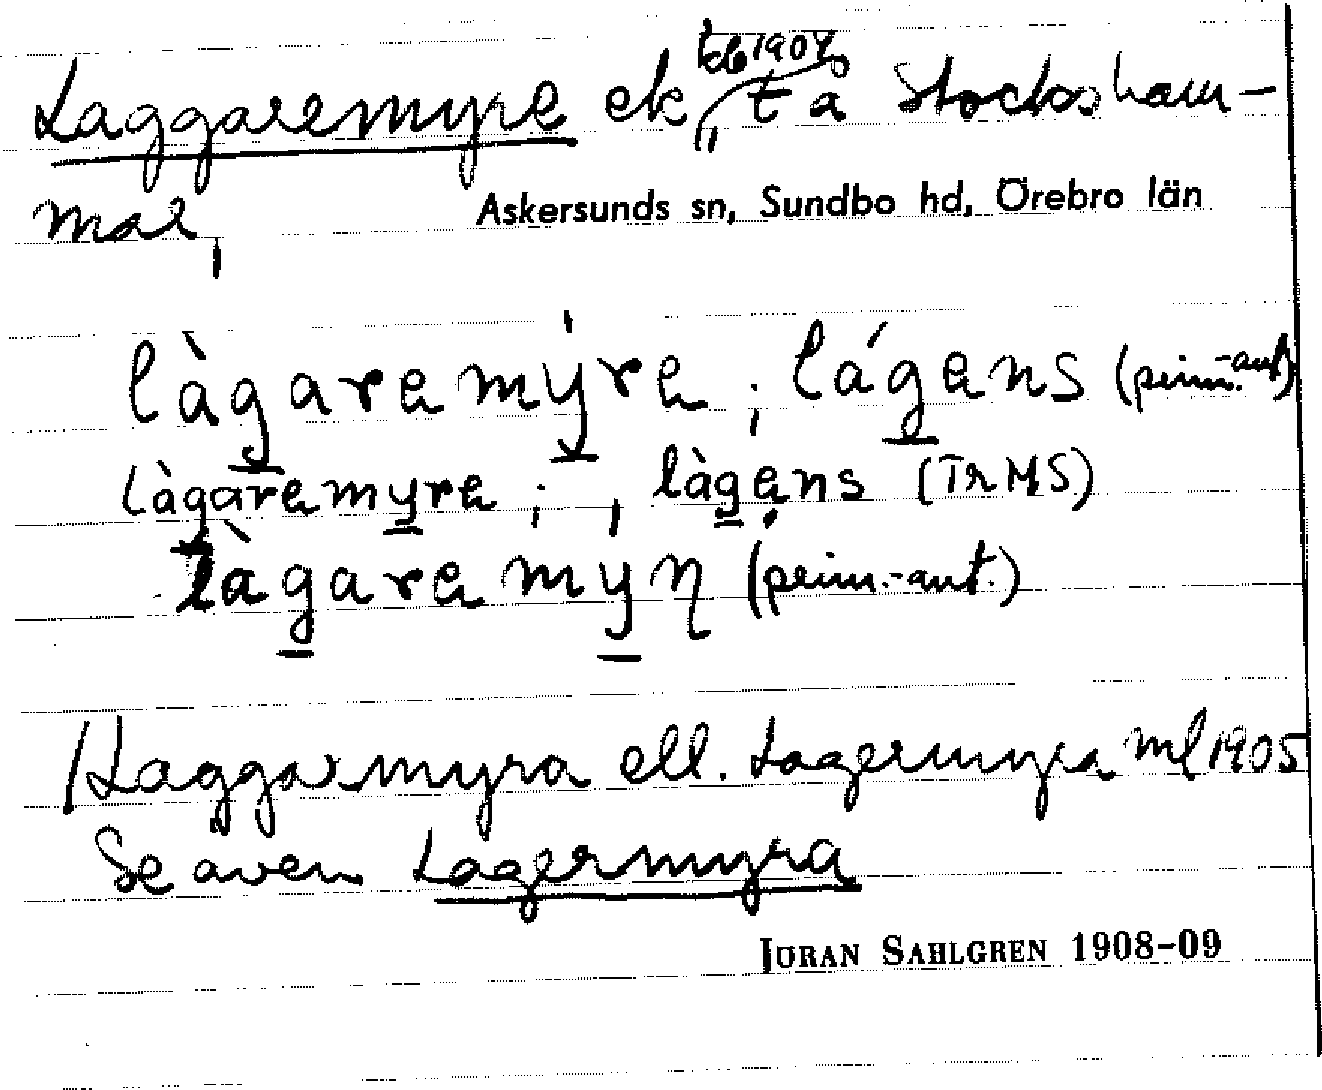 kb 1904
Laggaremyre ek, t å Stocksham-
mar,
Askersunds sn, Sundbo hd, Örebro län
làgaremýre; lágens (prim.-ant)
làgaremyre; , làgens (TRMS)
làgaremýn (prim.-ant.)
/Laggarmyra ell. Lagermyra ml 1905
Se även Lagermyra
JÖRAN SAHLGREN 1908-09